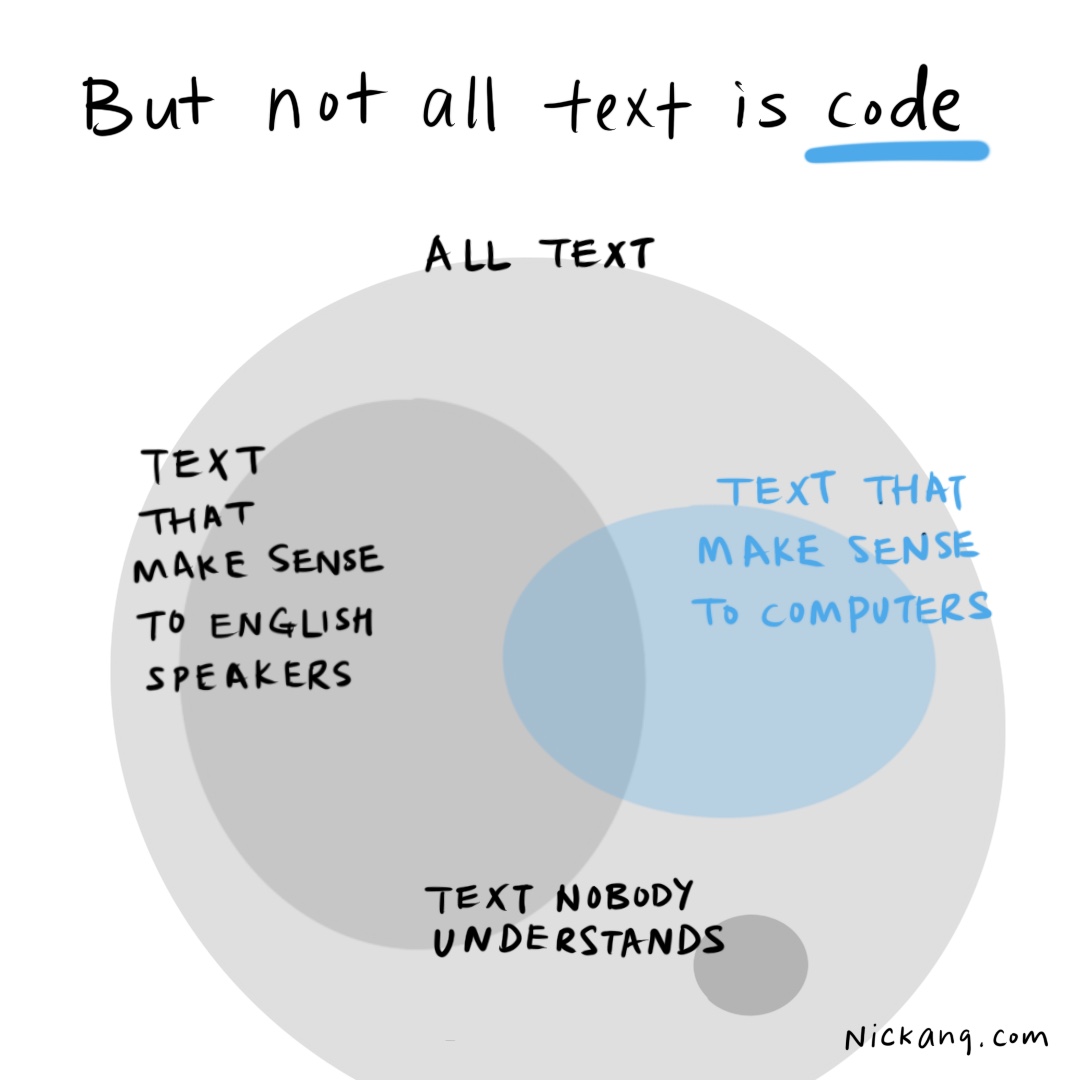 But not all text is code
ALL TEXT
TEXT
THAT
MAKE SENSE
TO ENGLISH
SPEAKERS
TEXT THAT
MAKE SENSE
TO COMPUTERS
TEXT NOBODY
UNDERSTANDS
Nickang.com